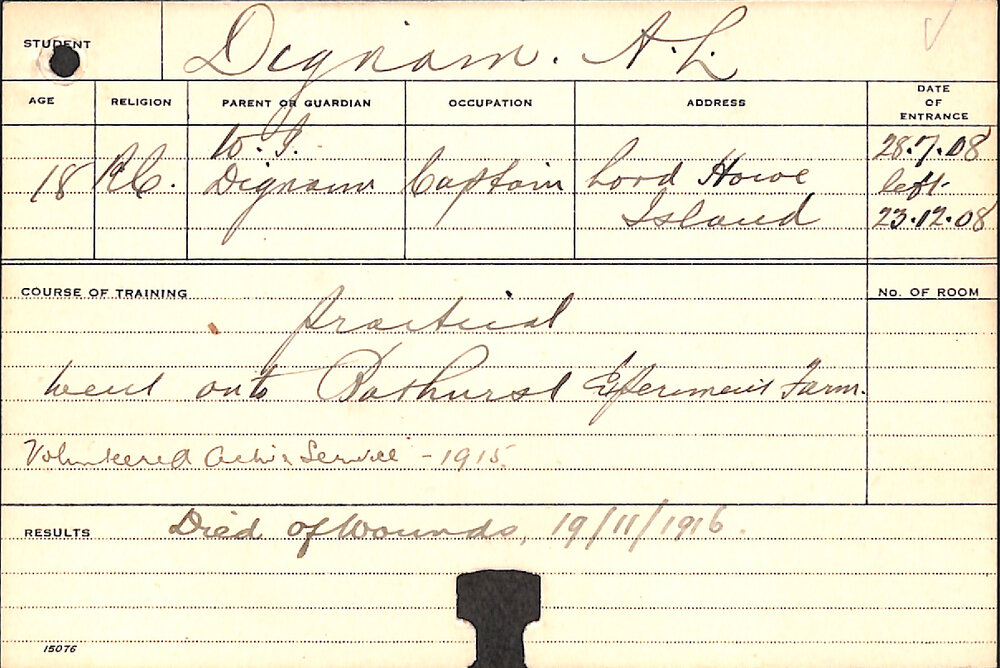 STUDENT Dignam. A.L.
AGE RELIGION PARENT OR GUARDIAN OCCUPATION ADDRESS DATE OF ENTRANCE
18 R.C. W. J. Dignam Captain Lord Howe Island 28.7.08 left 23.12.08
COURSE OF TRAINING
No. OF ROOM
practical
went onto Bathurst Experiment Farm.
Volunteered Active Service - 1915.
RESULTS Died of Wounds, 19/11/1916.
15076